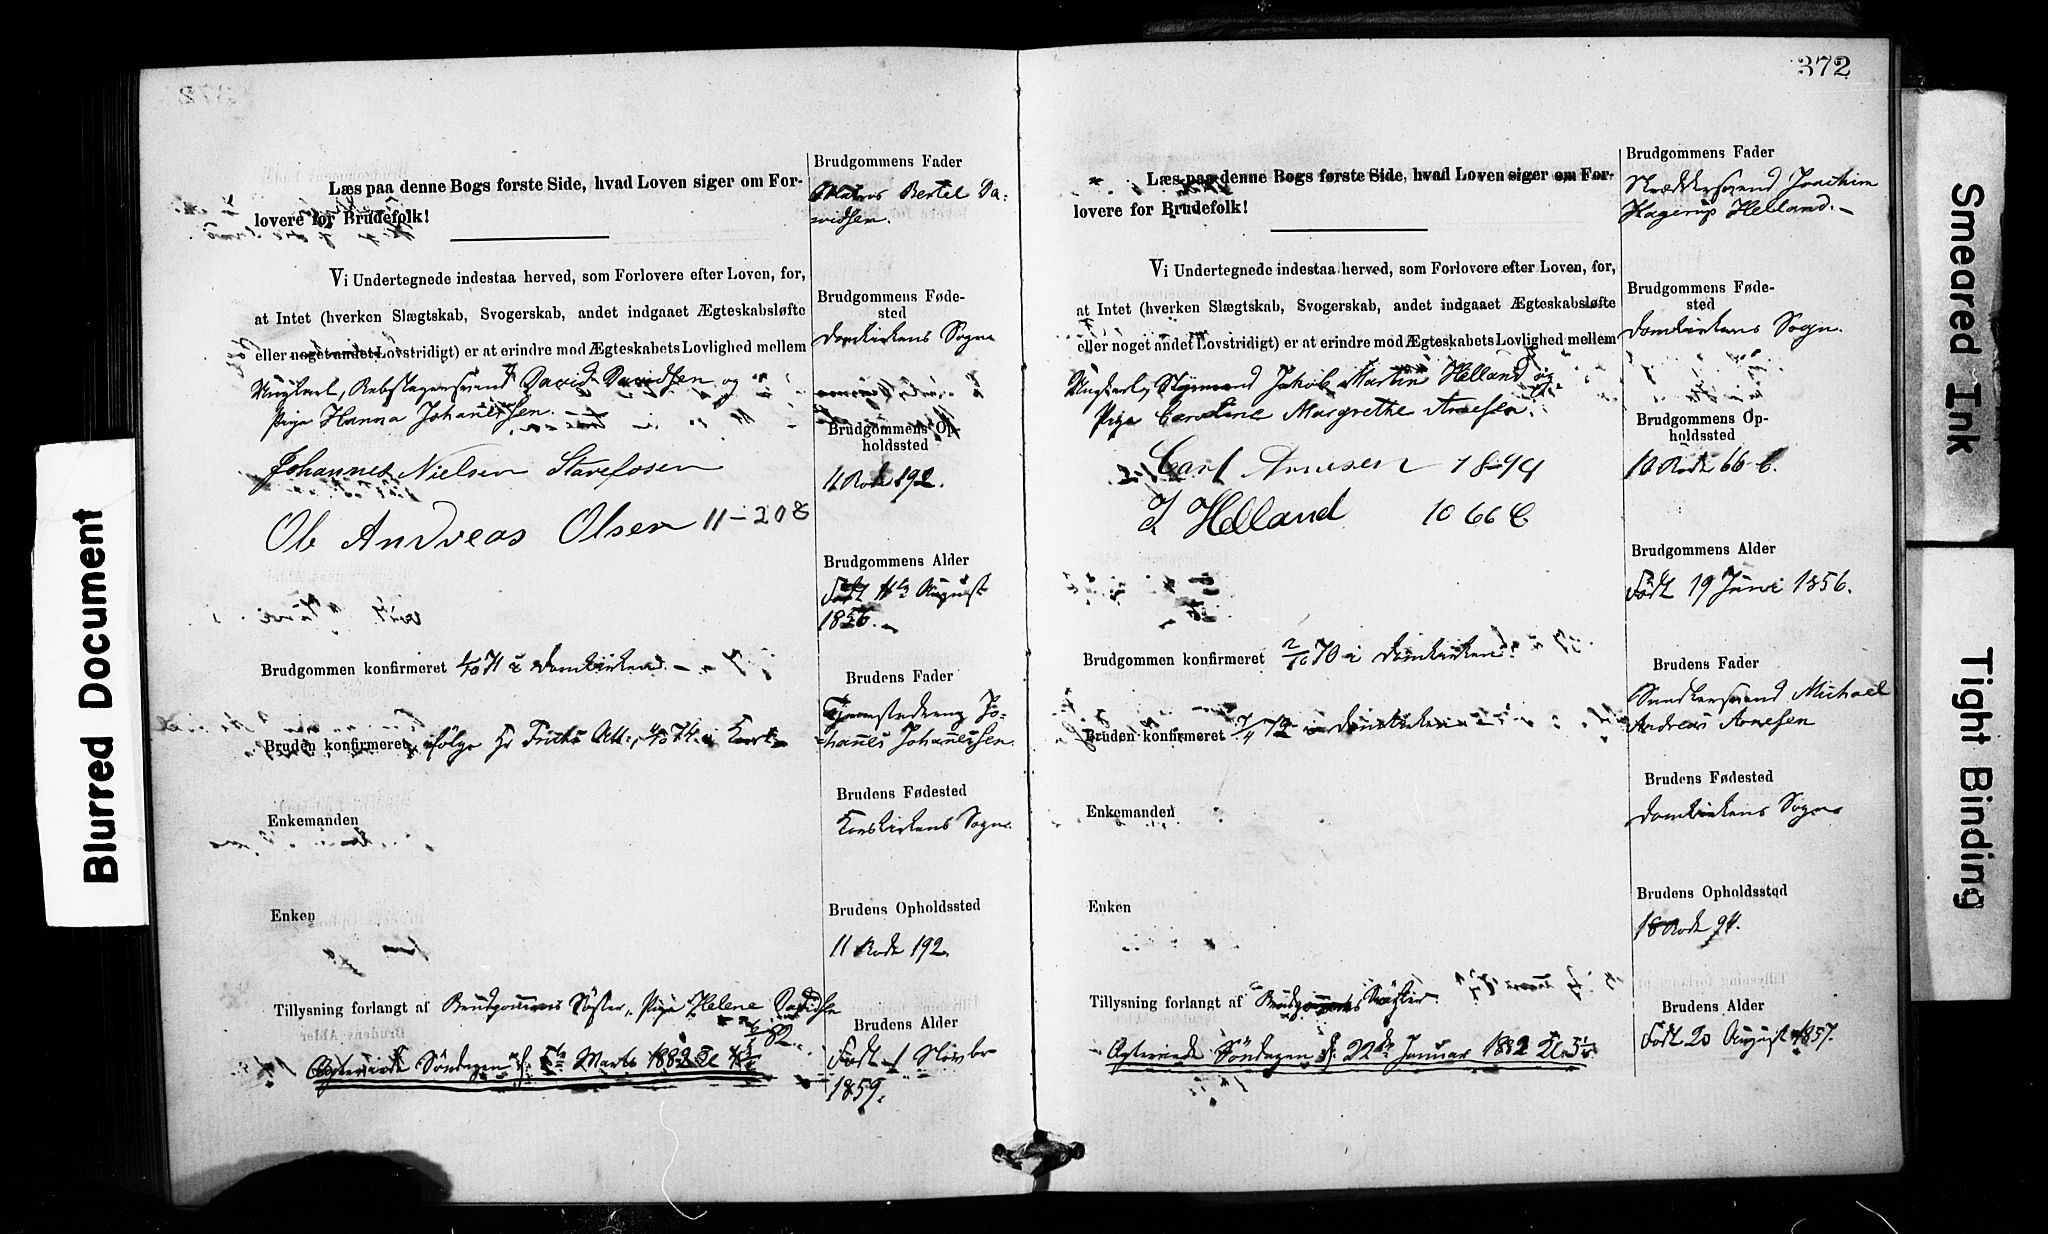 372
Læs paa denne Bogs første Side, hvad Loven siger om For-
lovere for Brudefolk!
Vi Undertegnede indestaa herved, som Forlovere efter Loven, for,
at Intet (hverken Slægtskab, Svogerskab, andet indgaaet Ægteskabsløfte
eller noget andet Lovstridigt) er at erindre mod Ægteskabets Lovlighed mellem
Ungkarl, Rebslagersvend David Davidsen og
Pige Hanna Johannessen.
Johannes Nielsen Stavefosen
Ole Andreas Olsen 11-208
Brudgommen konfirmeret 1/10 71 i Domkirken
Bruden konfirmeret ifølge Hr Att: 4/10 74 i
Enkemanden
Enken
Tillysning forlangt af Brudgommens Søster, Pige Helene Davidsen
Søndagen d. 5te Marts 1882 Kl
Brudgommens Fader
Bertel Da-
vidsen.
Brudgommens Føde-
sted
Domkirkens Sogn
Brudgommens Op-
holdssted
11 Rode 192.
Brudgommens Alder
Født August
1856.
Brudens Fader
Jo-
hannes Johannessen.
Brudens Fødested
Korskirkens Sogn.
Brudens Opholdssted
11 Rode 192.
Brudens Alder
Født Novbr
1859.
Læs paa denne Bogs første Side, hvad Loven siger om For-
lovere for Brudefolk!
Vi Undertegnede indestaa herved, som Forlovere efter Loven, for,
at Intet (hverken Slægtskab, Svogerskab, andet indgaaet Ægteskabsløfte
eller noget andet Lovstridigt) er at erindre mod Ægteskabets Lovlighed mellem
Ungkarl, Styrmand Jakob Martin Helland og
Pige Caroline Margrethe Arnesen.
Carl Arnesen 18-94
J Helland 10 66 C
Brudgommen konfirmeret 2/10 70 i Domkirken
Bruden konfirmeret i Domkirken
Enkemanden
Enken
Tillysning forlangt af Brudgommens Søster.
Søndagen d. 22de Januar 1882 Kl. 5
Brudgommens Fader
Snedkersvend Joachim
Hagerup Helland.
Brudgommens Føde-
sted
Domkirkens Sogn.
Brudgommens Op-
holdssted
10 Rode 66 C.
Brudgommens Alder
Født 19 Juni 1856.
Brudens Fader
Snedkersvend Michael
Andreas Arnesen
Brudens Fødested
Domkirkens Sogn
Brudens Opholdssted
18 Rode 94.
Brudens Alder
Født 20 August 1857.
Blurred Document
Smeared Ink
Tight Binding